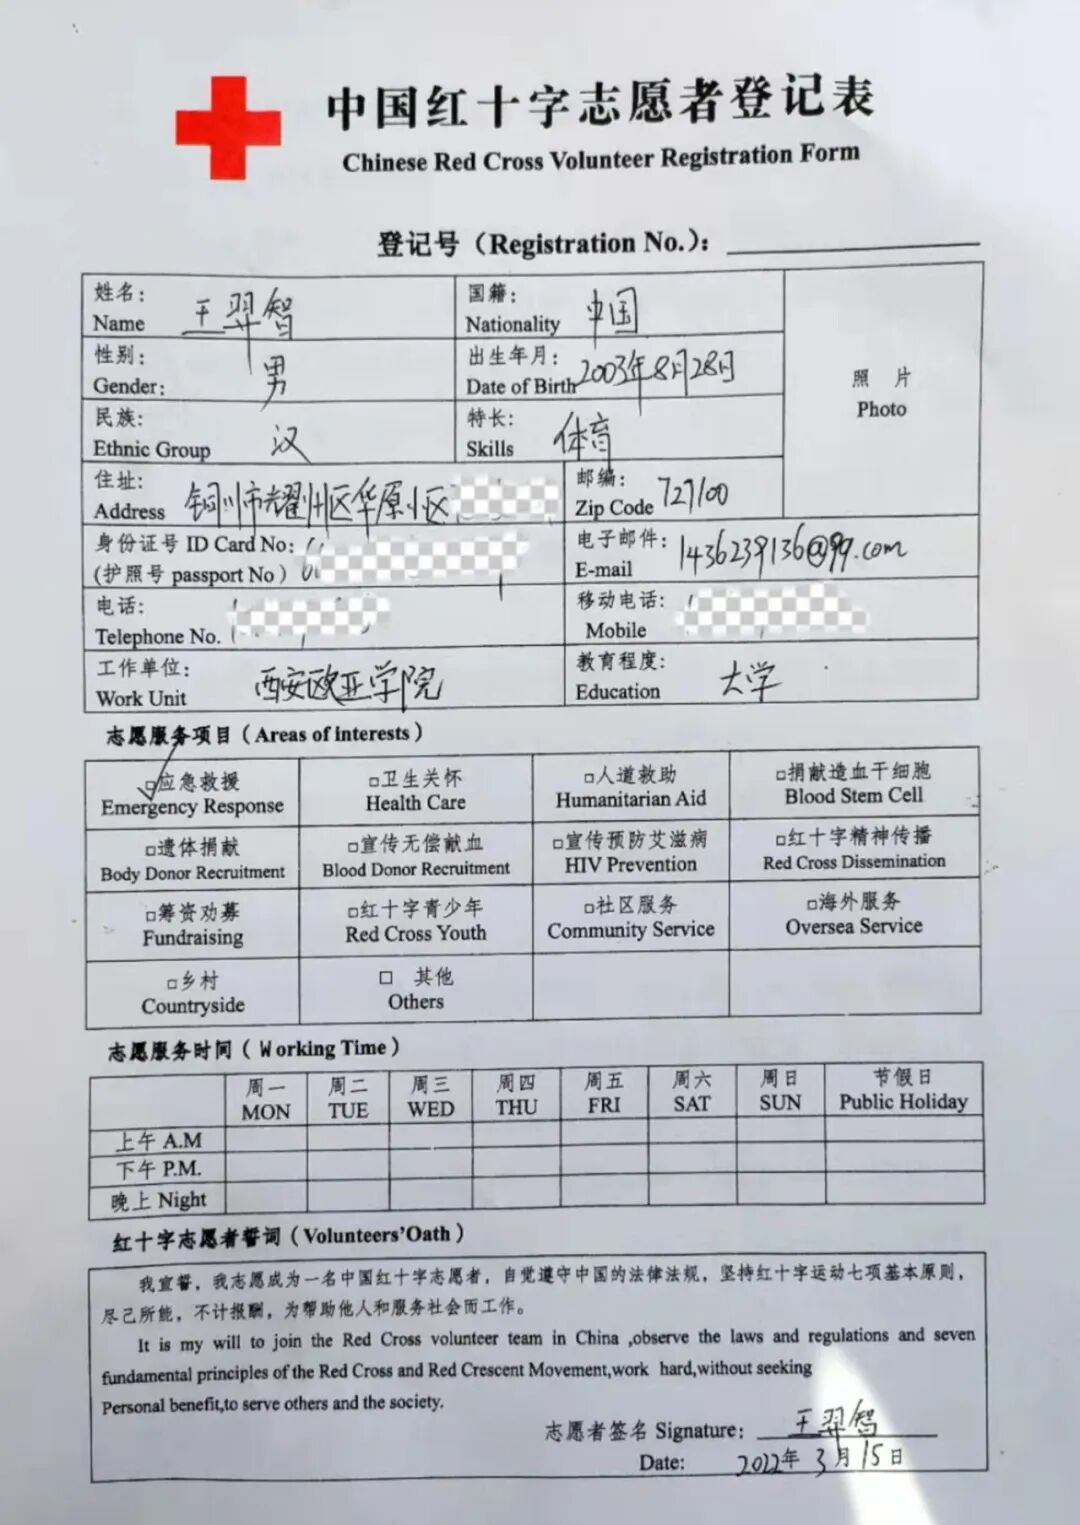 中国红十字志愿者登记表
Chinese Red Cross Volunteer Registration Form
登记号（Registration No.）：
姓名： 王羿智 国籍： 中国
Name Nationality
照 片
Photo
性别： 男 出生年月： 2003年8月28日
Gender: Date of Birth
民族： 汉 特长： 体育
Ethnic Group Skills
住址： 铜川市耀州区华原小区 邮编： 727100
Address Zip Code
身份证号 ID Card No: 电子邮件： 1436239136@qq.com
(护照号 passport No ) E-mail
电话： 移动电话：
Telephone No. Mobile
工作单位： 西安欧亚学院 教育程度： 大学
Work Unit Education
志愿服务项目（Areas of interests）
☑应急救援 □卫生关怀 □人道救助 □捐献造血干细胞
Emergency Response Health Care Humanitarian Aid Blood Stem Cell
□遗体捐献 □宣传无偿献血 □宣传预防艾滋病 □红十字精神传播
Body Donor Recruitment Blood Donor Recruitment HIV Prevention Red Cross Dissemination
□筹资劝募 □红十字青少年 □社区服务 □海外服务
Fundraising Red Cross Youth Community Service Oversea Service
□乡村 □ 其他
Countryside Others
志愿服务时间（Working Time）
周一 周二 周三 周四 周五 周六 周日 节假日
MON TUE WED THU FRI SAT SUN Public Holiday
上午 A.M
下午 P.M.
晚上 Night
红十字志愿者誓词（Volunteers'Oath）
我宣誓，我志愿成为一名中国红十字志愿者，自觉遵守中国的法律法规，坚持红十字运动七项基本原则，
尽己所能，不计报酬，为帮助他人和服务社会而工作。
It is my will to join the Red Cross volunteer team in China ,observe the laws and regulations and seven
fundamental principles of the Red Cross and Red Crescent Movement,work hard,without seeking
Personal benefit,to serve others and the society.
志愿者签名 Signature: 王羿智
Date: 2022年3月15日